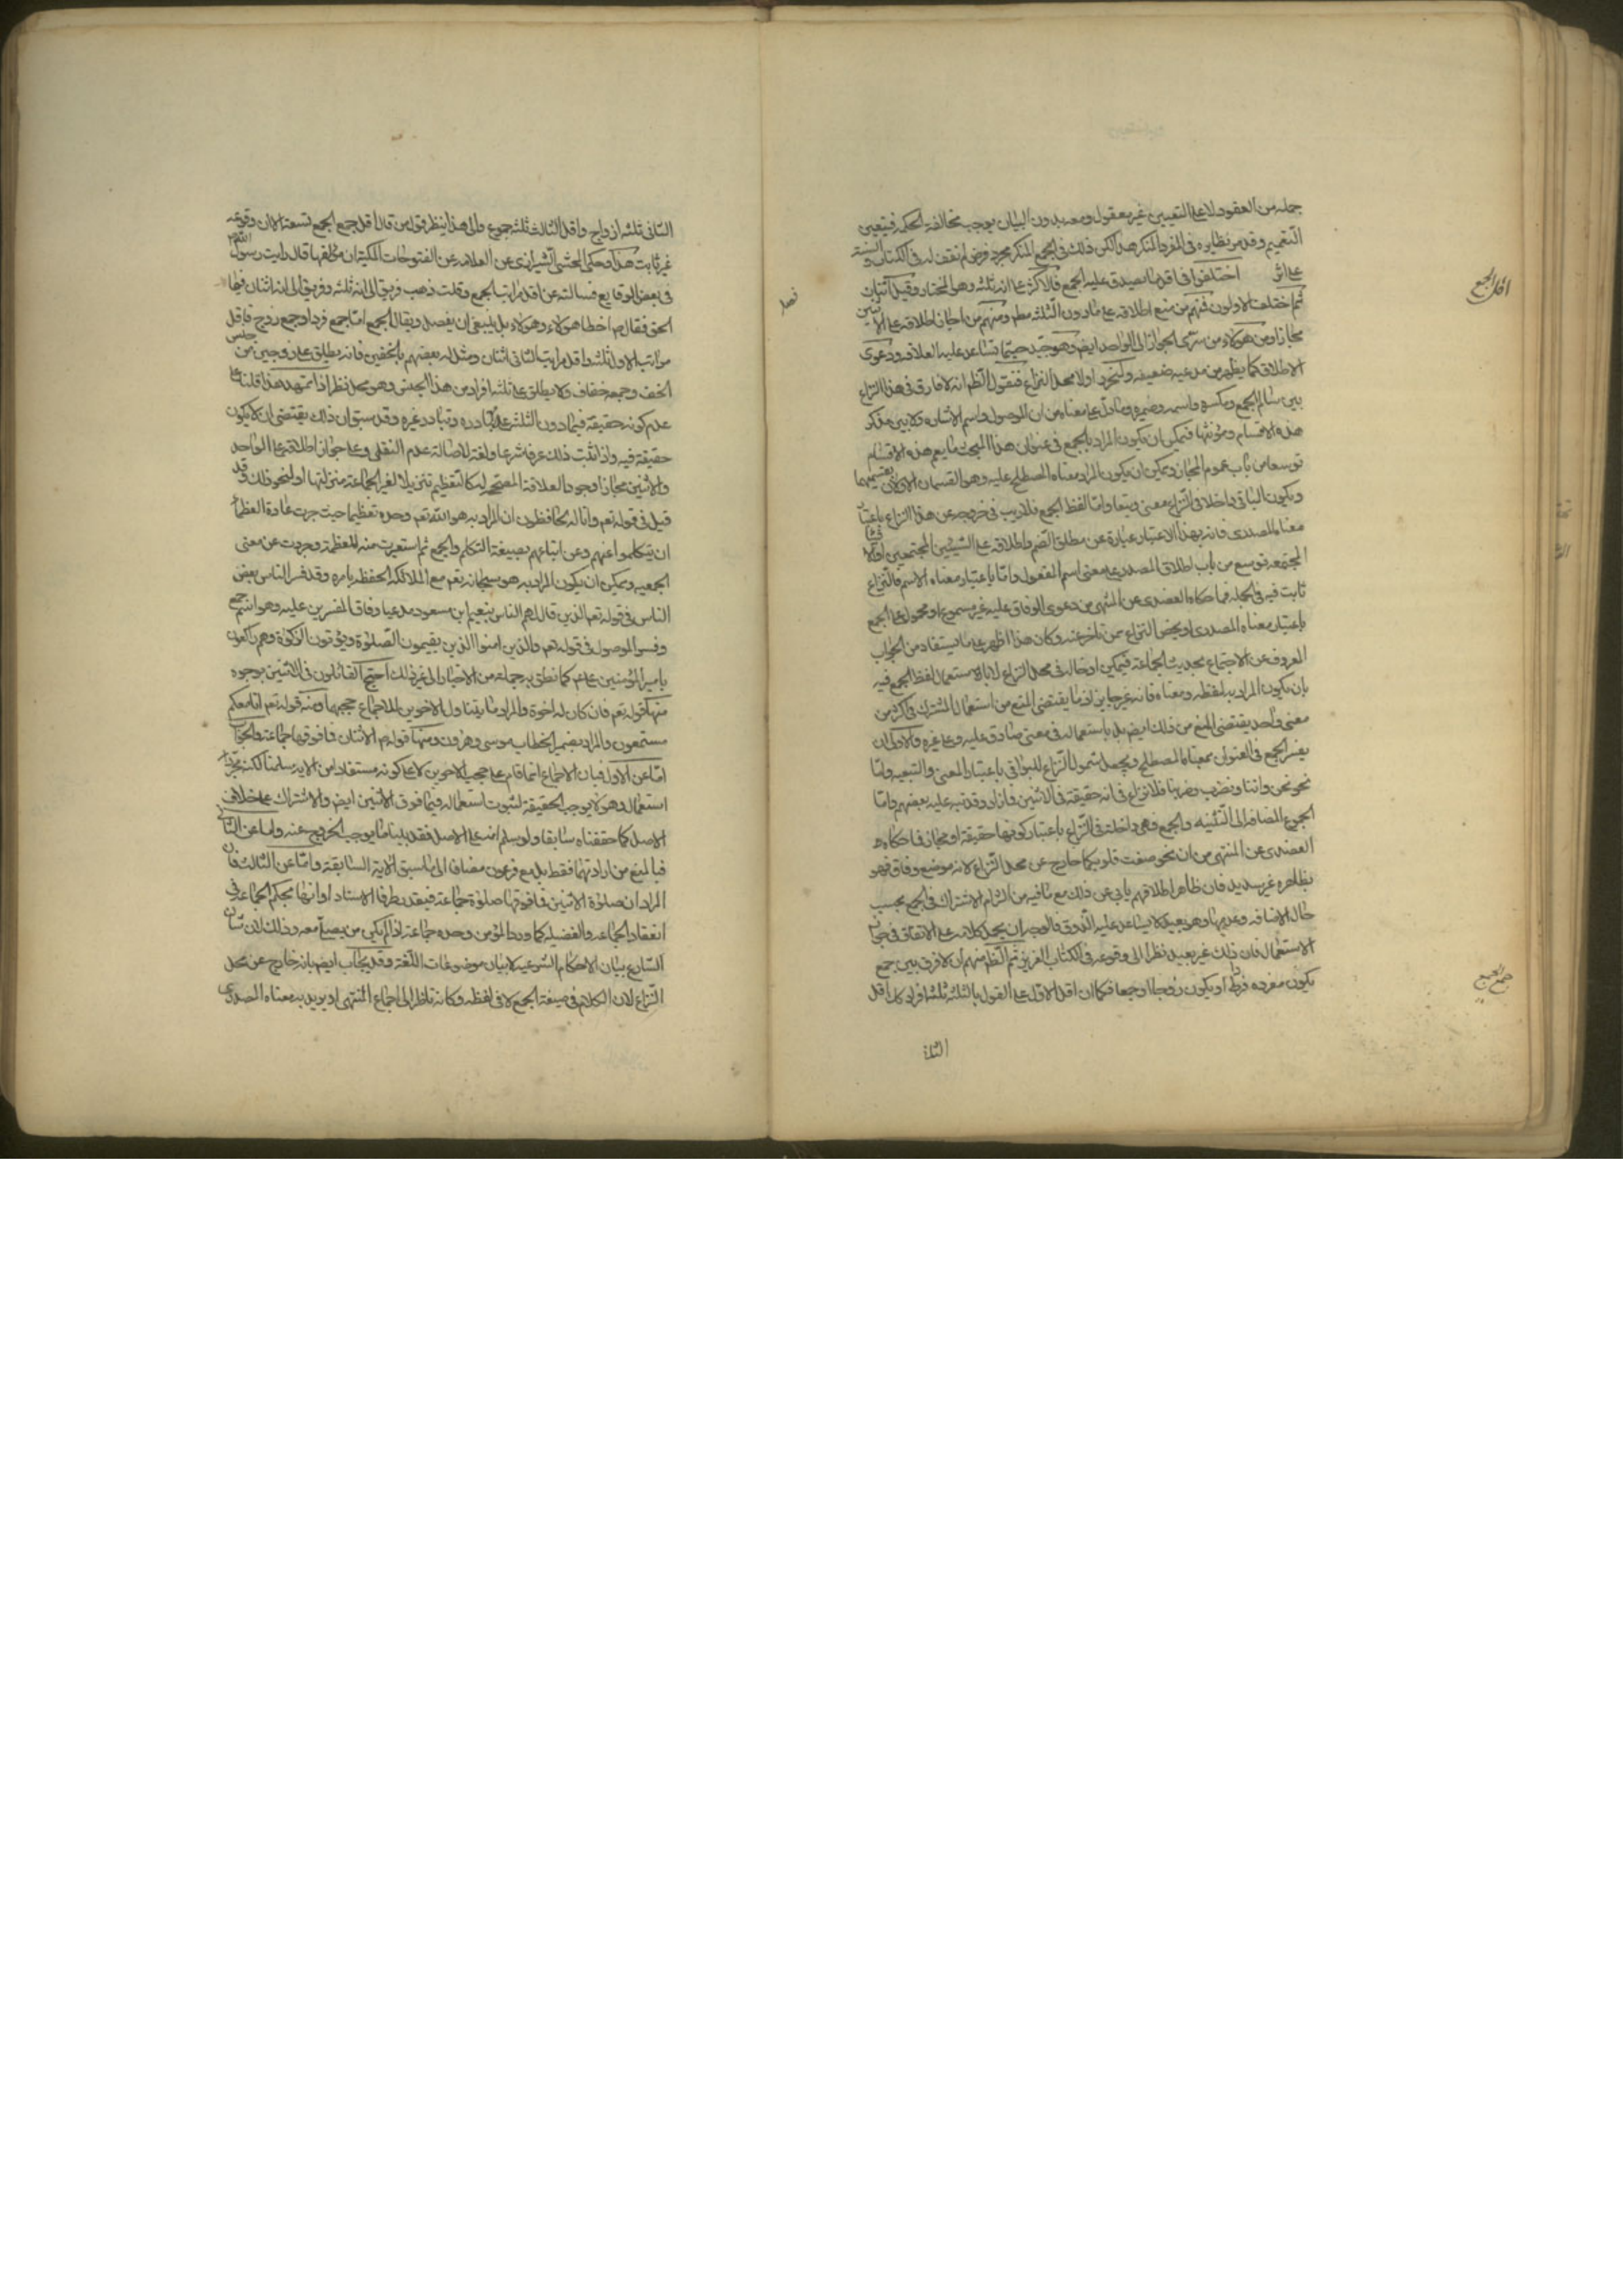 جملة من العقود لا على التعيين غير معقول ومعه بدون البيان يوجب مخالفة الحكمة فيتعين
التعميم وقد مر نظايره في المفرد المنكر هذا لكن ذلك في الجمع المنكر مجرد فرض لم نقف له في الكتاب والسنة
على اثر اختلفوا في اقل ما يصدق عليه الجمع فالاكثر على انه ثلثة وهو المختار وقيل اثنان
اقل الجمع
ثم اختلف الاولون فمنهم من منع اطلاقه على ما دون الثلثة مطم ومنهم من اجاز اطلاقه على الاثنين
مجازا ومن هؤلاء من سرى الجواز الى الواحد ايضا وهو جيد حيثما تساعد عليه العلاقة ودعوى
الاطلاق كما يظهر من مدعيه ضعيفة ولنحرر اولا محل النزاع فنقول الظم انه لا فارق في هذا النزاع
بين سالم الجمع ومكسره واسمه وضميره وما دل على معناه من الموصول واسم الاشارة ولا بين مذكر
هذه الاقسام ومؤنثها فيمكن ان يكون المراد بالجمع في عنوان هذا المبحث ما يعم هذه الاقسام
توسعا من باب عموم المجاز ويمكن ان يكون المراد معناه المصطلح عليه وهو القسمان الاولان بقسميهما
ويكون الباقي داخلا في النزاع معنى وتبعا واما لفظ الجمع فلا ريب في خروجه عن هذا النزاع باعتبار
معناه المصدري فانه بهذا الاعتبار عبارة عن مطلق الضم واطلاقه على الشيئين المجتمعين او الاشياء
المجتمعة توسع من باب اطلاق المصدر على معنى اسم المفعول واما باعتبار معناه الاسمي فالنزاع
ثابت فيه في الجملة فما حكاه العضدي عن المنتهى من دعوى الوفاق عليه غير مسموع او محمول على الجمع
باعتبار معناه المصدري او يخص النزاع بمن تاخر عنه وكان هذا اظهر على ما يستفاد من الجواب
المعروف عن الاحتجاج بحديث الجماعة فيمكن ادخاله في محل النزاع لا باستعمال لفظ الجمع فيه
بان يكون المراد به لفظه ومعناه فانه غير جايز لما يقتضي المنع من استعمال المشترك في اكثر من
معنى واحد يقتضي المنع من ذلك ايضا بل باستعماله في معنى صادق عليه وعلى غيره والاولى ان
يفسر الجمع في العنوان بمعناه المصطلح ويجعل شمول النزاع للبواقي باعتبار المعنى والتبعية واما
نحو نحن واننا ونضرب وضربنا فلا نزاع في انه حقيقة في الاثنين فما زاد وقد نبه عليه بعضهم واما
الجموع المضافة الى التثنية والجمع فهي داخلة في النزاع باعتبار كونها حقيقة او مجازا فما حكاه
العضدي عن المنتهى من ان نحو صغت قلوبكما خارج عن محل النزاع لانه موضع وفاق فهو
بظاهره غير سديد فان ظاهر اطلاقهم يابى عن ذلك مع ما فيه من التزام الاشتراك في الجمع بحسب
حال الاضافة وعدمها وهو بعيد لا يساعد عليه الذوق فالوجه ان يحمل كلامه على الاتفاق في جواز
الاستعمال فان ذلك غير بعيد نظرا الى وقوعه في الكتاب العزيز ثم الظم منهم ان لا فرق بين جمع
جمع الجمع
يكون مفرده فردا او يكون زوجا او جمعا فكما ان اقل الاول على القول بالثلثة ثلثة افراد كك اقل
الثاني ثلثة ازواج واقل الثالث ثلثة جموع والى هذا ينظر قول من قال اقل جمع الجمع تسعة الا ان وقوعه
غير ثابت هذا وحكى المحشي الشيرازي عن العلامة عن الفتوحات المكية ان مؤلفها قال رايت رسول الله ص
في بعض الوقايع فسالته عن اقل مراتب الجمع وقلت ذهب فريق الى انه ثلثة وفريق الى انه اثنان فما
الحق فقال ص اخطا هؤلاء وهؤلاء بل ينبغي ان يفصل ويقال الجمع اما جمع فرد او جمع زوج فاقل
مراتب الاول ثلثة واقل مراتب الثاني اثنان ومثل له بعضهم بالخفين فانه يطلق على زوجين من جنس
الخف وجمعه خفاف ولا يطلق على ثلثة افراد من هذا الجنس وهو محل نظر اذا تمهد هذا قلنا على
عدم كونه حقيقة فيما دون الثلثة عدم تبادره وتبادر غيره وقد سبق ان ذلك يقتضي ان لا يكون
حقيقة فيه واذا ثبت ذلك عرفا ثبت شرعا ولغة لاصالة عدم النقل وعلى جواز اطلاقه على الواحد
والاثنين مجازا وجود العلاقة المصححة له كالتعظيم تنزيلا لغير الجماعة منزلتها او لنحو ذلك وقد
قيل في قوله تعم وانا له لحافظون ان المراد به هو الله تعم وحده تعظيما حيث جرت عادة العظماء
ان يتكلموا عنهم وعن اتباعهم بصيغة التكلم والجمع ثم استعيرت منه للعظمة وجردت عن معنى
الجمعية ويمكن ان يكون المراد به هو سبحانه تعم مع الملائكة الحفظة بامره وقد فسر الناس بعض
الناس في قوله تعم الذين قال لهم الناس بنعيم ابن مسعود مدعيا وفاق المفسرين عليه وهو اسم جمع
وفسر الموصول في قوله تعم والذين امنوا الذين يقيمون الصلوة ويؤتون الزكوة وهم راكعون
بامير المؤمنين ع كما نطق به جملة من الاخبار الى غير ذلك احتج القائلون في الاثنين بوجوه
منها قوله تعم فان كان له اخوة والمراد ما يتناول الاخوين للاجماع حجبهما ومنه قوله تعم انا معكم
مستمعون والمراد بضمير الخطاب موسى وهرون ومنها قوله ص الاثنان فما فوقها جماعة والجواب
اما عن الاول فبان الاجماع انما قام على حجب الاخوين لا على كونه مستفادا من الاية سلمنا لكنه مجرد
استعمال وهو لا يوجب الحقيقة لثبوت استعماله فيما فوق الاثنين ايضا والاشتراك على خلاف
الاصل كما حققناه سابقا ولو سلم انه على الاصل فقد بينا ما يوجب الخروج عنه واما عن الثاني
فبالمنع من ارادتهما فقط بل مع فرعون مضافا الى ما سبق الاية السابقة واما عن الثالث فان
المراد ان صلوة الاثنين فما فوقها صلوة جماعة فيقدر طرفا الاسناد او انها بحكم الجماعة في
انعقاد الجماعة والفضيلة كما ورد المؤمن وحده جماعة اذا لم يكن من يصلي معه وذلك لان شان
الشارع بيان الاحكام الشرعية لا بيان موضوعات اللغة وقد يجاب ايضا بانه خارج عن محل
النزاع لان الكلام في صيغة الجمع لا في لفظه وكانه ناظر الى اجماع المنتهى او يريد به معناه المصدري